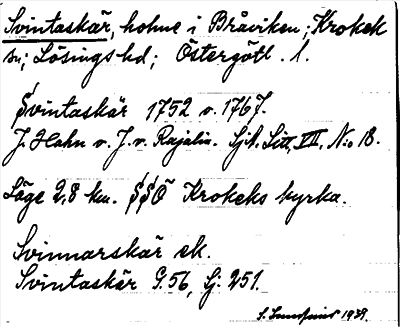 Svintaskär, holme i Bråviken; Krokek
sn; Lösings hd; Östergötl. l.
Svintaskär 1752 o. 1767.
J. Hahn o. J. v. Rajalin. Sjk. Litt. VII, N:o 18.
Läge 2,8 km. SSÖ Krokeks kyrka.
Svinnarskär ek.
Svintaskär G. 56, Sj. 251.
1939.